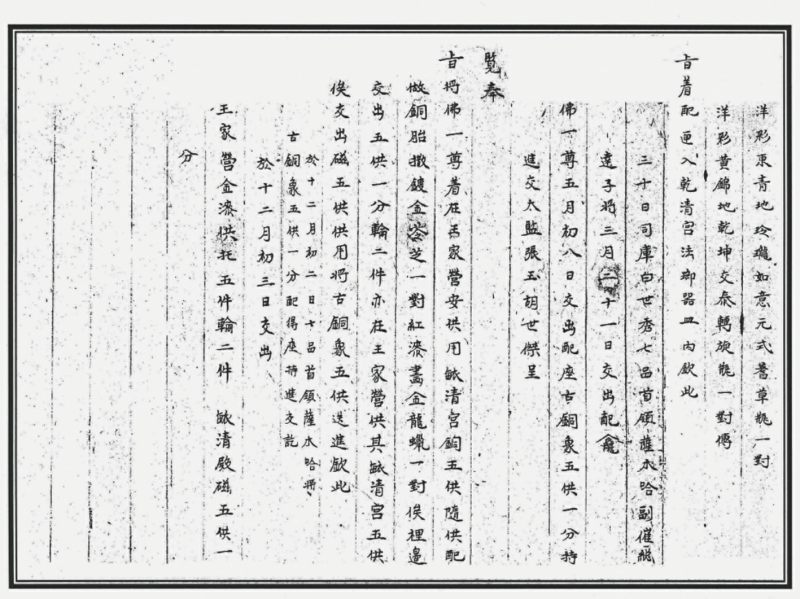 洋彩東青地玲瓏如意元式蓍草瓶一對
洋彩黃錦地乾坤交泰轉旋瓶一對傳
旨着配匣入乾清宮法瑯器皿內欽此
三十日司庫白世秀七品首領薩木哈副催總
達子將三月二十一日交出配龕
佛一尊五月初八日交出配座古銅彖五供一分持
進交太監張玉胡世傑呈
覽奉
旨將佛一尊着在王家營安供用毓清宮銅五供隨供配
做銅胎撒鍍金灵芝一對紅漆畫金龍蠟一對俟裡邉
交出五供一分輪二件亦在王家營供其毓清宮五供
俟交出磁五供供用將古銅彖五供送進欽此
於十二月初二日七品首領薩木哈將
古銅彖五供一分配得座持進交訖
於十二月初三日交出
王家營金漆供托五件輪二件 毓清殿磁五供一
分